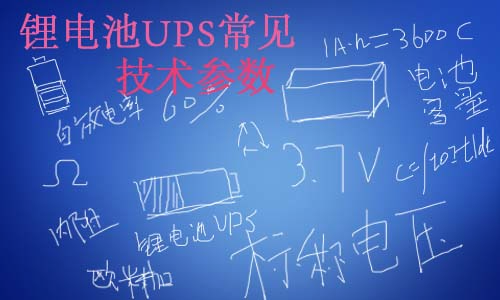 锂电池UPS常见
技术参数
1A·h=3600C
电池
容量
自放电率
60%
3.7V
Ω
内阻
锂电池UPS
标称电压